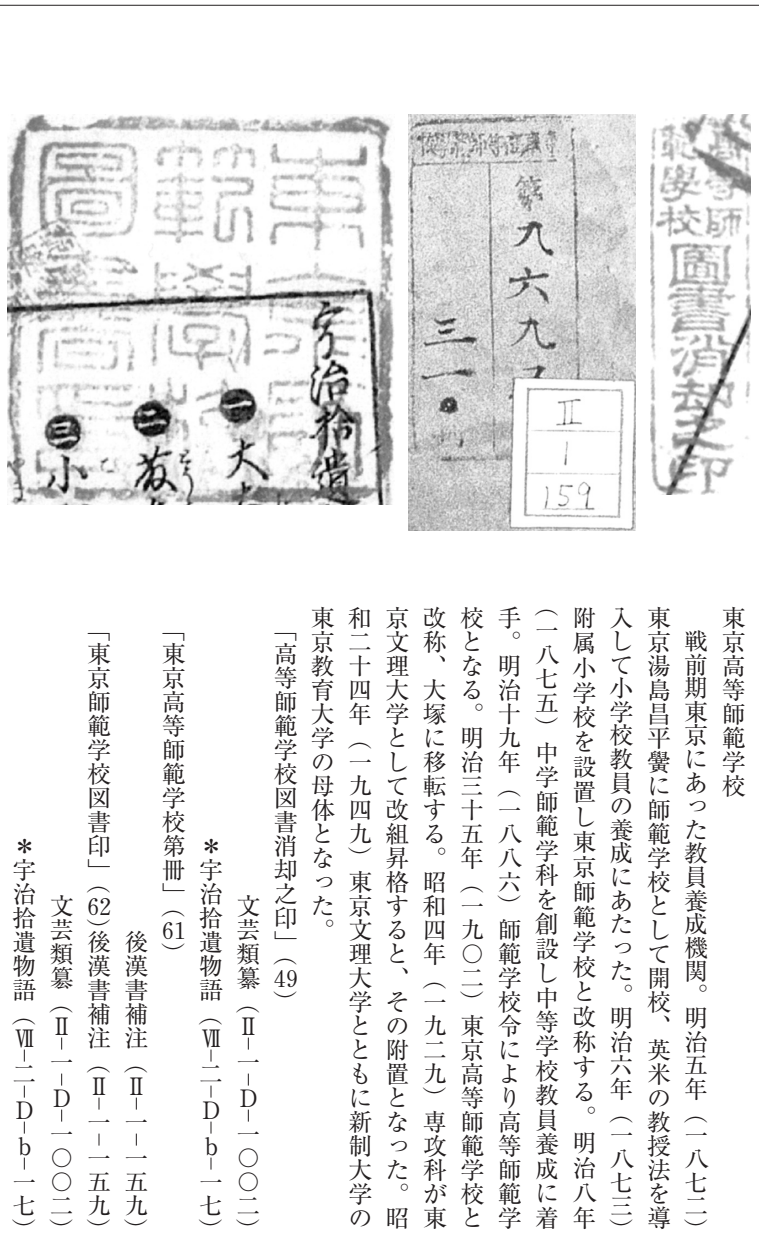 高等師
範學校
圖書消却之印
東京高等師範学校
第
九六九
三一〇
Ⅱ
1
159
宇治拾遺
一
大
二
三
小
東京高等師範学校
戦前期東京にあった教員養成機関。明治五年（一八七二）
東京湯島昌平黌に師範学校として開校、英米の教授法を導
入して小学校教員の養成にあたった。明治六年（一八七三）
附属小学校を設置し東京師範学校と改称する。明治八年
（一八七五）中学師範学科を創設し中等学校教員養成に着
手。明治十九年（一八八六）師範学校令により高等師範学
校となる。明治三十五年（一九〇二）東京高等師範学校と
改称、大塚に移転する。昭和四年（一九二九）専攻科が東
京文理大学として改組昇格すると、その附置となった。昭
和二十四年（一九四九）東京文理大学とともに新制大学の
東京教育大学の母体となった。
「高等師範学校図書消却之印」（49）
文芸類纂（Ⅱ−一−D−一〇〇二）
＊宇治拾遺物語（Ⅶ−二−D−b−一七）
「東京高等師範学校第冊」（61）
後漢書補注（Ⅱ−一−一五九）
「東京師範学校図書印」（62）後漢書補注（Ⅱ−一−一五九）
文芸類纂（Ⅱ−一−D−一〇〇二）
＊宇治拾遺物語（Ⅶ−二−D−b−一七）